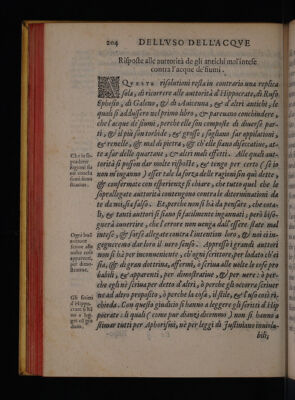 204 DELL'VSO DELL'ACQVE
Risposte alle auttorità de gli antichi mal'intese
contra l'acque de' fiumi.
QUESTA risolutioni resta in contrario una replica
sola, di ricorrere alle auttorità d'Hippocrate, di Ruffo
Ephesio, di Galeno, & di Auicenna, & d'altri antichi, le
quali si addussero nel primo libro, & paruano conchiudere,
che l'acque de' fiumi, perche elle son composte di diuerse par-
ti, & il più son torbide, & grosse, sogliano far oppilationi,
& renelle, & mal di pietra, & ch'elle siano disseccatiue, at-
te a far delle quartane, & altri mali effetti. Alle quali aut-
torità si posson dar molte risposte, & tengo per certo (se io
non m'inganno) esser tale la forza delle ragioni fin quì dette,
& confermate con esperienza sì chiare, che tutte quel che le
sopr'allegate auttorità contengono contra le determinationi da
te da me, sia falso. Et perche non si hà da pensare, che cota-
li, & tanti auttori si siano sì facilmente ingannati; però biso-
gnerà auuertire, che l'errore non uenga dall'essere state mal
intese, & forse allegate contra l'intention loro, & noi c'in-
gegneremo dar loro il uero senso. Appresso i grandi auttori
non si hà per inconueniente, ch'ogni scrittore, per lodato ch'ei
sia, & di gran dottrina, affermi, ò scriua alle uolte le cose pro
babili, & apparenti, per dimostratiue, & per uere: ò per-
che egli ui scriua per detto d'altri, ò perche gli occorra scriuer
ne ad altro proposito, ò perche la cosa, il stile, & l'uso così ri-
chieda. Con questo giudicio si hanno a leggere gli scritti d'Hip
pocrate: li quali (come pur dianzi dicemmo) non si hanno a
stimar tutti per Aphorismi, nè per leggi di Iustiniano inuiola-
bili;
Ogni buõ
auttore
scriue alle
uolte cose
apparenti,
per dimo-
stratiue.
Gli scritti
d'Hippo-
crate si hã
no a leg-
ger cõ giu
dicio.